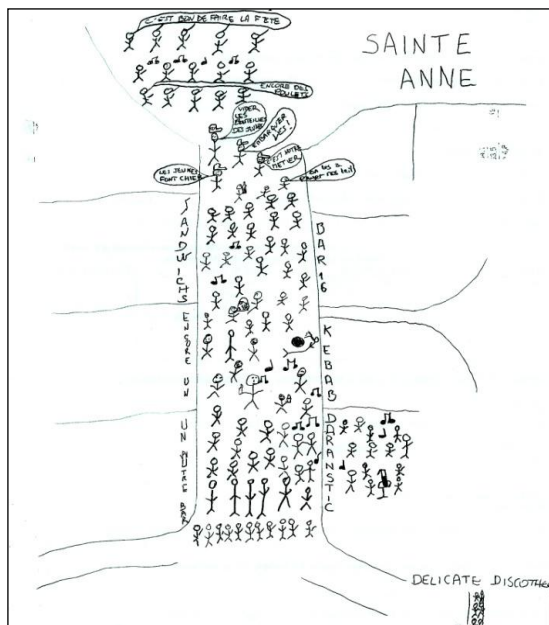 C'EST BON DE FAIRE LA FÊTE
SAINTE
ANNE
ENCORE DES
POULETS
VIDER
LES
BOUTEILLES
DES JEUNES
EMBARQUER
LES!
C'EST NOTRE
METIER
LES JEUNES
FONT CHIER
SANDWICHS
ENCORE UN
UN AUTRE BAR
BAR 16
KEBAB
DARANSTIC
DELICATE DISCOTHE